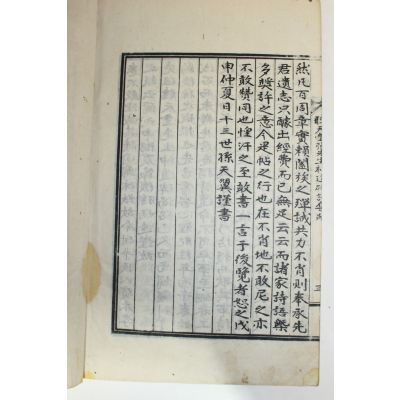 然凡百周章實賴闔族之殫誠共力不肖則奉承先
君遺志只醵出經費而已無足云云而諸家詩語槩
多獎許之意今是帖之行也在不肖地不敢尼之亦
不敢贊同也惶汗之至敢書一言于後覽者恕之戊
申仲夏日十三世孫天翼謹書